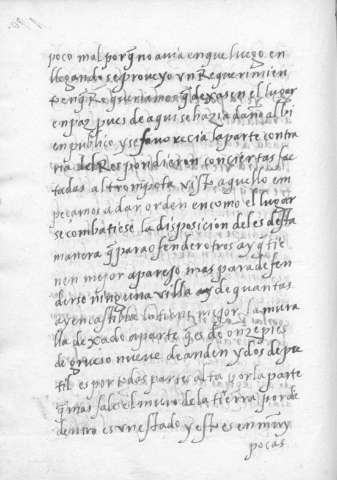 poco mal porq̃ no avia en que luego en
llegando se proveyo vn Requerimien
en q̃ Requeriamos q̃ dexasen el lugar
en paz pues de aqui se hazia daño al Rei
en publico y se favorecia la parte contra
ria del Respondieron con ciertas sae
tadas al trompeta visto aquello em
peçamos a dar orden en como el lugar
se combatiese la disposicion del es desta
manera q̃ para ofender otros ay q̃ tie
nen mejor aparejo mas para defen
derse ninguna villa de quantas
ay en castilla lo tiene mejor la mura
lla dexado aparte q̃ es de onze pies
de grueso nueve de anden y dos de pre
til es por todas partes alta y por la parte
q̃ mas sale el muro de la tierra por de
dentro es vn estado y esto es en muy
pocas